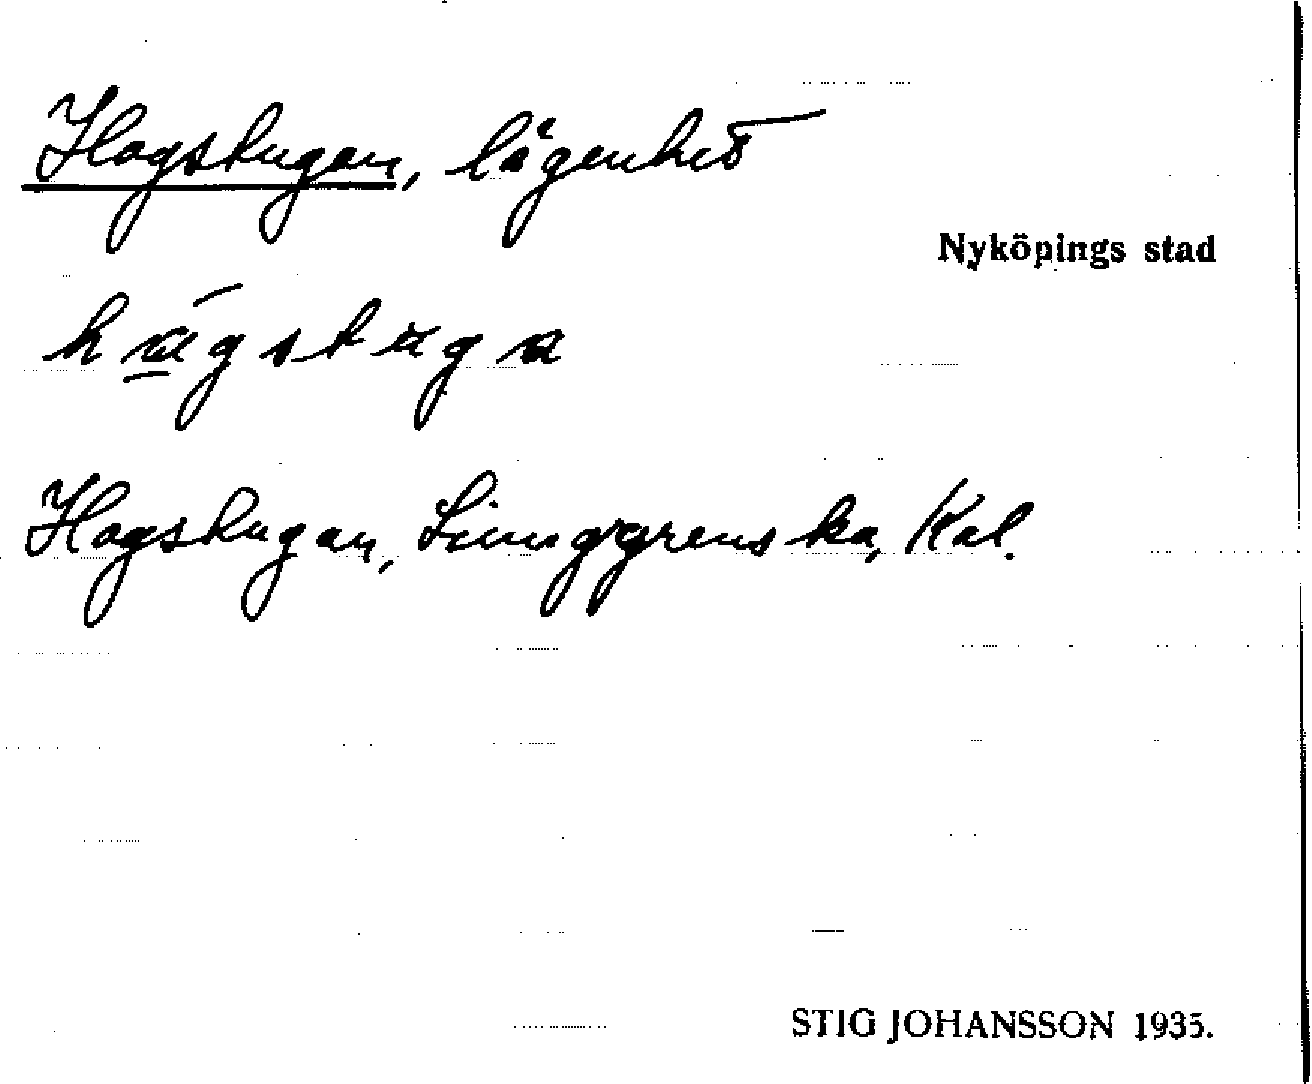 Hagstugan, lägenhet
Nyköpings stad
Hagstugan, Ljunggrenska, Kal.
STIG JOHANSSON 1935.